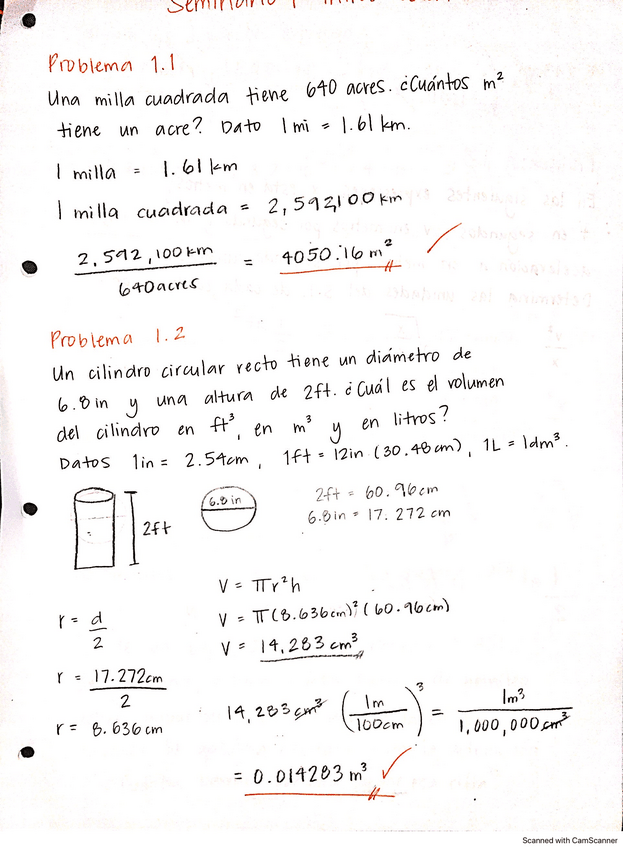 Seminario 1
Problema 1.1
Una milla cuadrada tiene 640 acres. ¿Cuántos m²
tiene un acre? Dato 1 mi = 1.61 km.
1 milla = 1.61 km
1 milla cuadrada = 2,592,100 km
2,592,100 km / 640 acres = 4050.16 m² ✓
Problema 1.2
Un cilindro circular recto tiene un diámetro de
6.8 in y una altura de 2ft. ¿Cuál es el volumen
del cilindro en ft³, en m³ y en litros?
Datos 1in = 2.54cm, 1ft = 12in (30.48cm), 1L = 1dm³.
2ft
6.8 in
2ft = 60.96cm
6.8in = 17.272 cm
V = πr²h
r = d/2
V = π(8.636cm)²(60.96cm)
V = 14,283 cm³
r = 17.272cm / 2
r = 8.636 cm
14,283 cm³ (1m / 100cm)³ = 1m³ / 1,000,000 cm³
= 0.014283 m³ ✓
Scanned with CamScanner